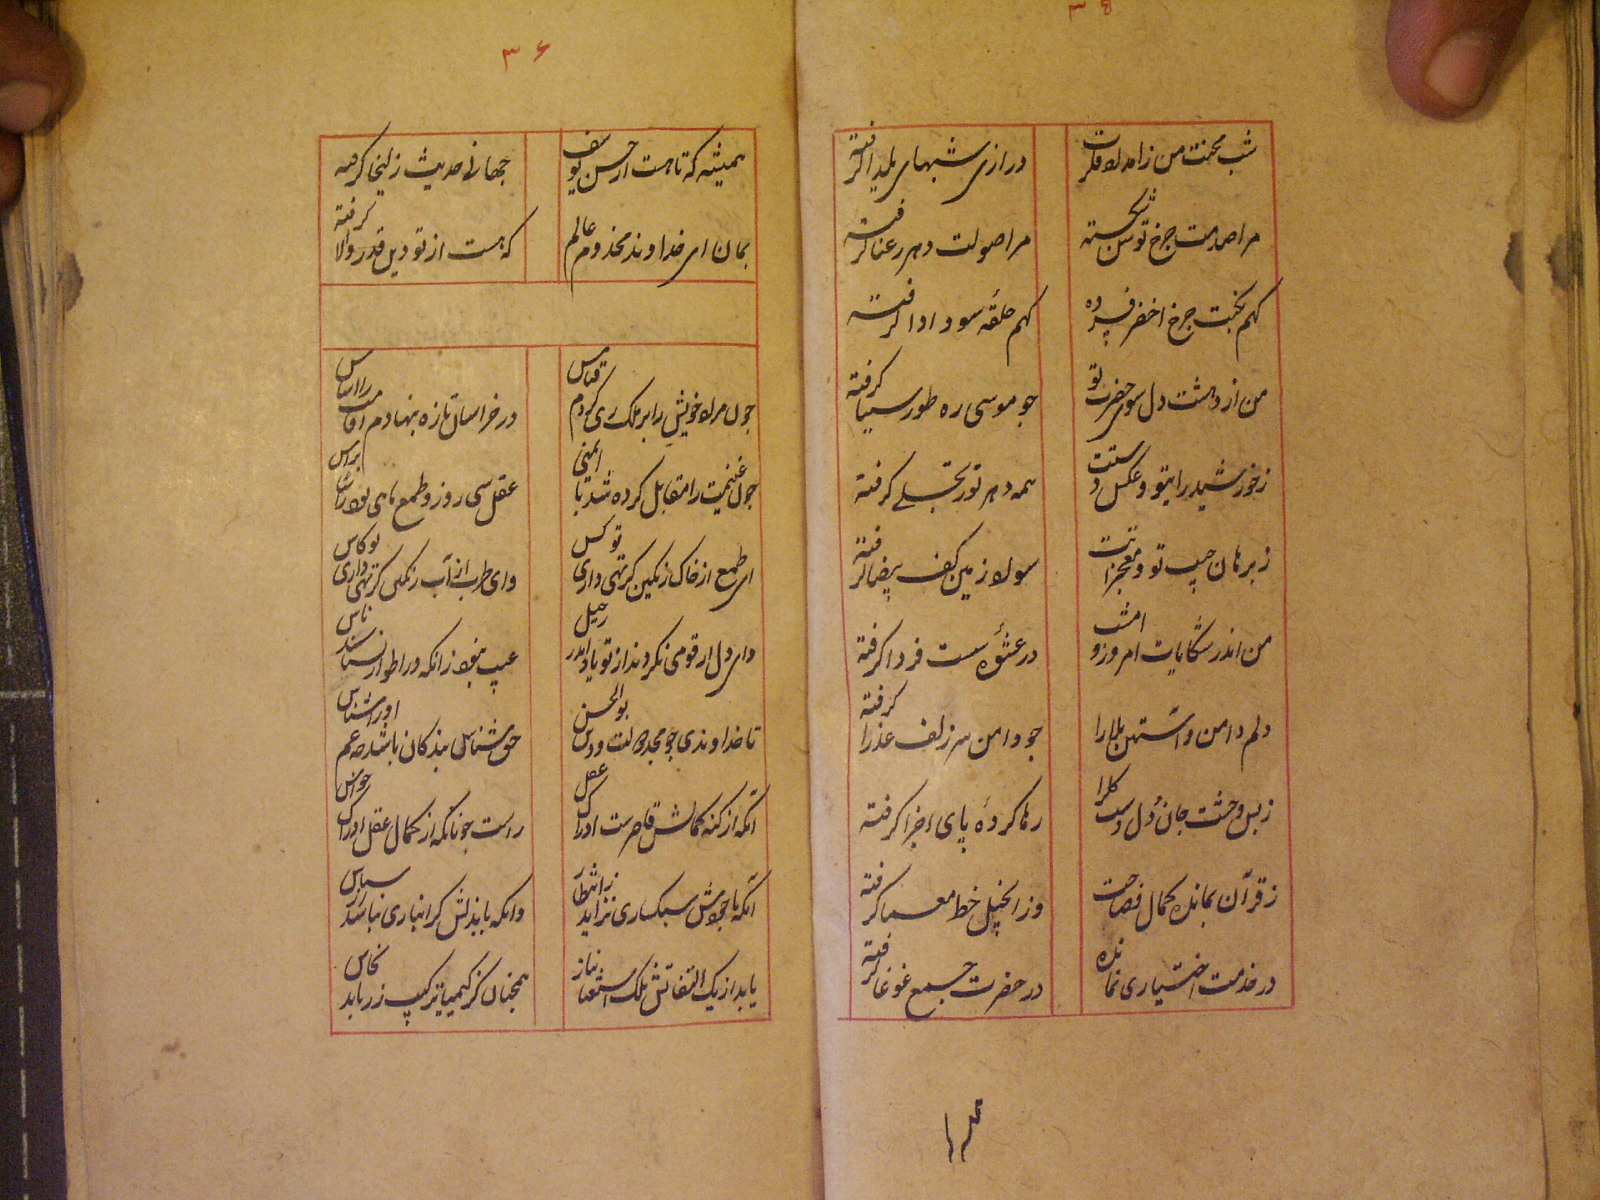 ۳۵
شب محنت من زامداد فکرت
درازی شبهای یلدا گرفته
مرا صدمت چرخ توسن شکسته
مرا صولت دهر رعنا گرفته
کهم بخیت چرخ اخضر فسرده
کهم حلقه سودادا گرفته
من از دهشت دل سوی حضرت تو
چو موسی ره طور سینا گرفته
زخورشید رایتو و عکس دستت
همه دهر نور تجلی گرفته
زبرهان جیب تو و معجزاتت
سواد زمین کف بیضا گرفته
من اندر شکایات امروز و امشب
در عشوه ست فردا گرفته
دلم دامن و آستین بلا را
چو دامن سر زلف عذرا گرفته
زبس وحشت جان و دل دست کلرا
رها کرده پای اجزا گرفته
زقرآن بمانده کمال فصاحت
وز انجیل خط معما گرفته
در خدمت اختیاری نمانده
در حضرت جمع غوغا گرفته
۳۶
همیشه که تا هست از حسن یوسف
جهانی حدیث زلیخا گرفته
بمان ای خداوند مخدوم عالم
که هست از تو دین قدر والا گرفته
چون مراد خویش را بر ملک ری کردم قیاس
در خراسان تازه بنهادم اقامت را اساس
چون غنیمت را مقابل کرده شد با ایمنی
عقل سی روز و طمع ماهی بود راسا براس
ای طمع از خاک رنگین گر تهی داری تو کس
وای طرب از آب رنگی گر تهی داری تو کاس
وای دل ار قومی نکردند از تو یاد اندر رحیل
عیب نبود زانکه در اطوار نسناسند ناس
تا خداوندی چو مجد دولت و دین بوالحسن
حق شناس بندگان باشد چه غم اورا شناس
آنکه از کنه کمالش قاصرست ادراک عقل
راست چونانکه از کمال عقل ادراک حواس
آنکه با جودش سبکساری نزاید ز انتظار
وانکه با بذلش گرانباری نباشد از سپاس
یابد از یک التفاتش ملک استغنا نیاز
همچنان کز کیمیا ترکیب زر یابد نحاس